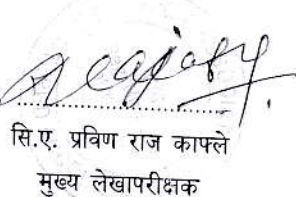 सि.ए. प्रविण राज काफ्ले
मुख्य लेखापरीक्षक